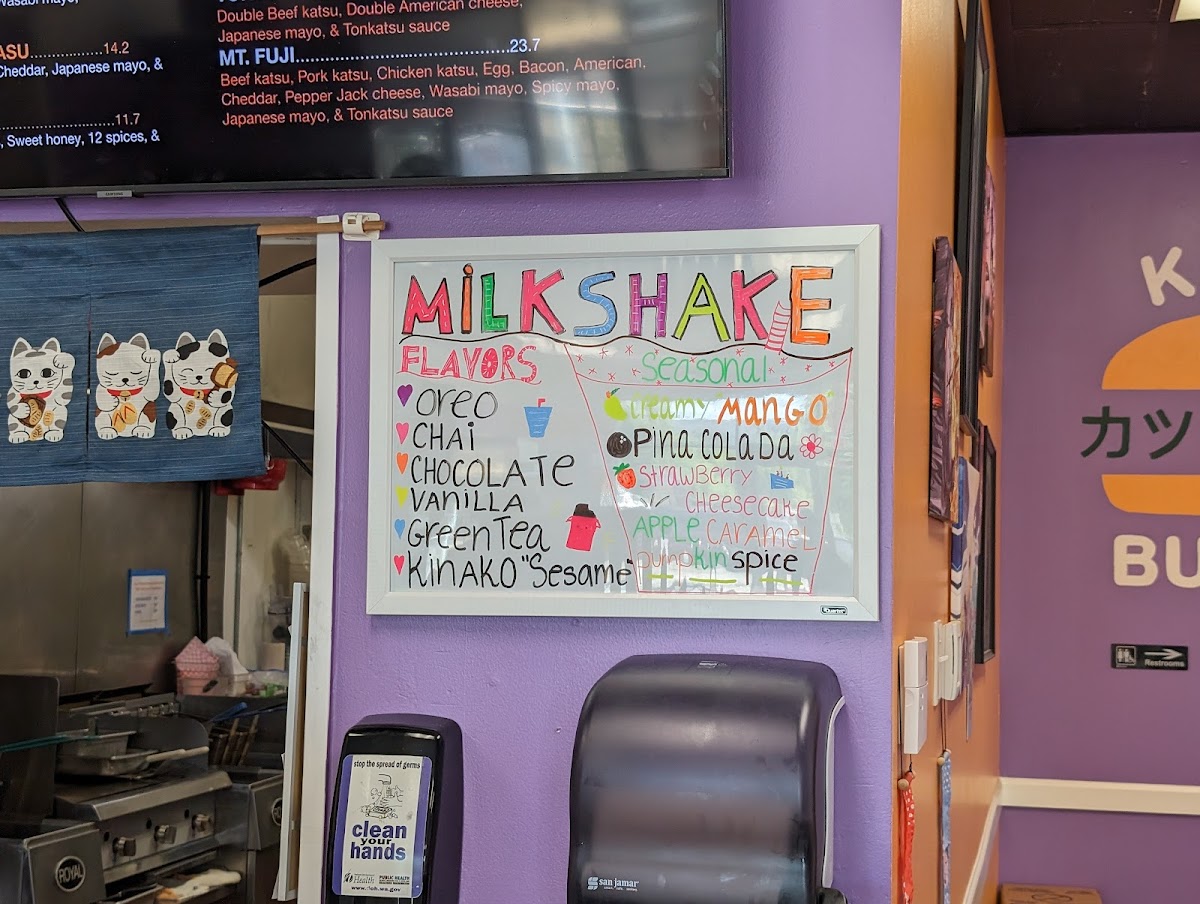 Double Beef katsu, Double American cheese,
Japanese mayo, & Tonkatsu sauce
MT. FUJI..................................23.7
Beef katsu, Pork katsu, Chicken katsu, Egg, Bacon, American,
Cheddar, Pepper Jack cheese, Wasabi mayo, Spicy mayo,
Japanese mayo, & Tonkatsu sauce
ASU.................14.2
Cheddar, Japanese mayo, &
11.7
Sweet honey, 12 spices, &
SAMSUNG
MILKSHAKE
FLAVORS
OREO
CHAI
CHOCOLATE
VANILLA
GREEN TEA
KINAKO "Sesame"
Seasonal
Creamy "MANGO"
PINA COLADA
STRAWBERRY
CHEESECAKE
APPLE CARAMEL
pumpkin spice
Quartet
K
カツ
BU
Restrooms
stop the spread of germs
clean
your
hands
Health
PUBLIC HEALTH
san jamar
ROYAL